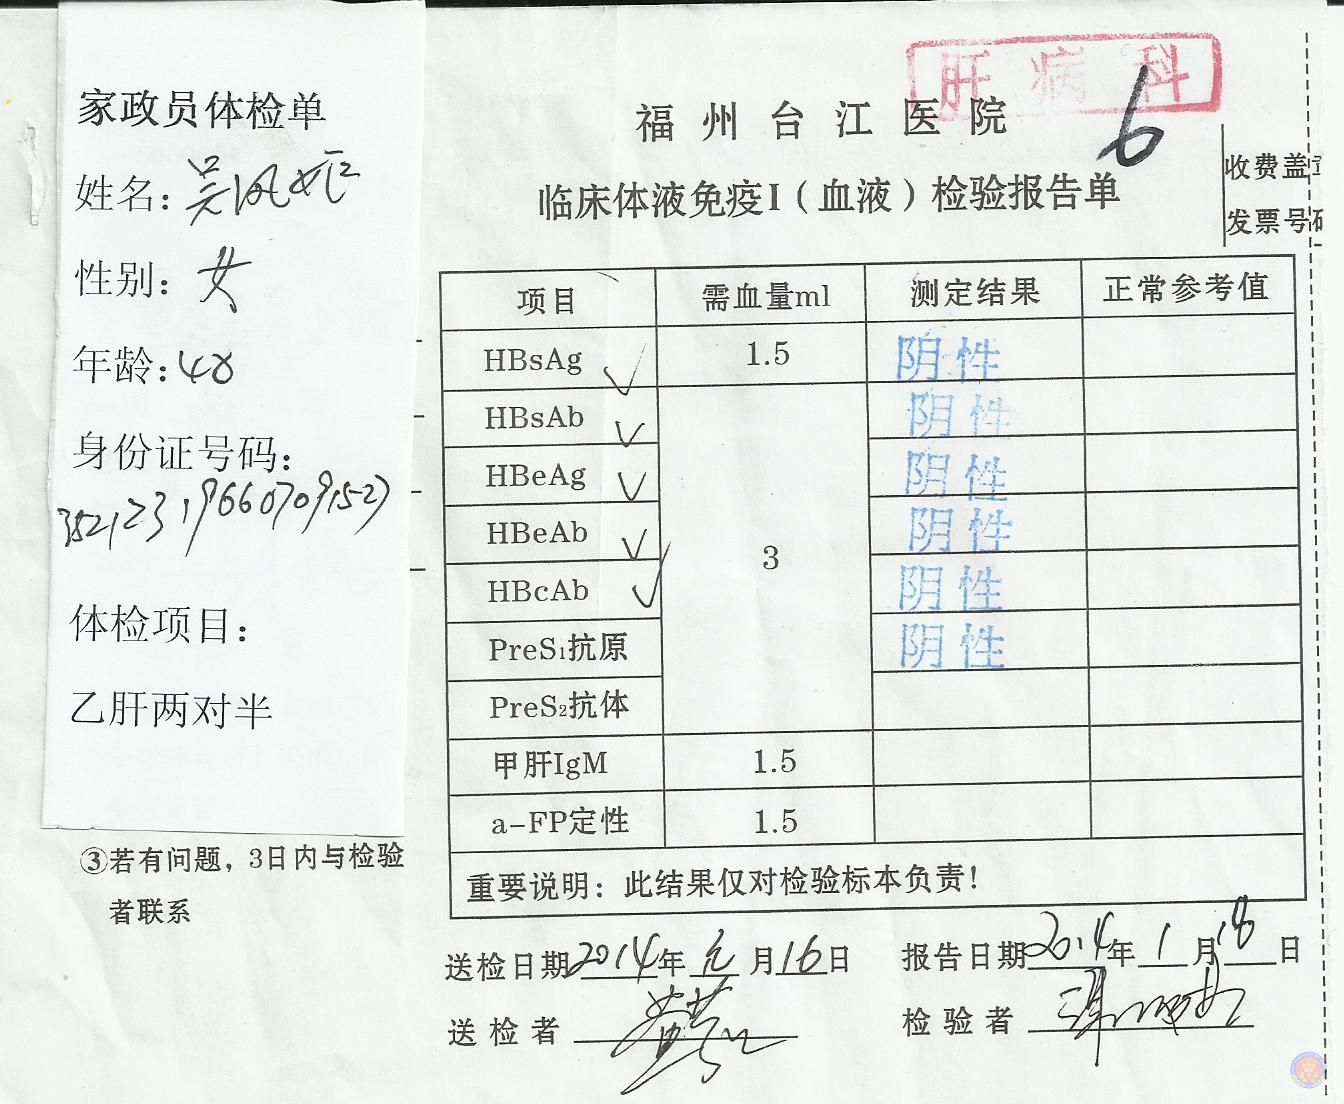 家政员体检单
姓名：吴凤妮
性别：女
年龄：48
身份证号码：
352123196607091527
体检项目：
乙肝两对半
③若有问题，3日内与检验
者联系
肝病科
福州台江医院
6
临床体液免疫I（血液）检验报告单
收费盖章
发票号码
项目 需血量ml 测定结果 正常参考值
HBsAg ✓ 1.5 阴性
HBsAb ✓ 阴性
HBeAg ✓ 阴性
HBeAb ✓ 3 阴性
HBcAb ✓ 阴性
PreS₁抗原 阴性
PreS₂抗体
甲肝IgM 1.5
a-FP定性 1.5
重要说明：此结果仅对检验标本负责！
送检日期2014年元月16日 报告日期2014年1月18日
送检者 检验者